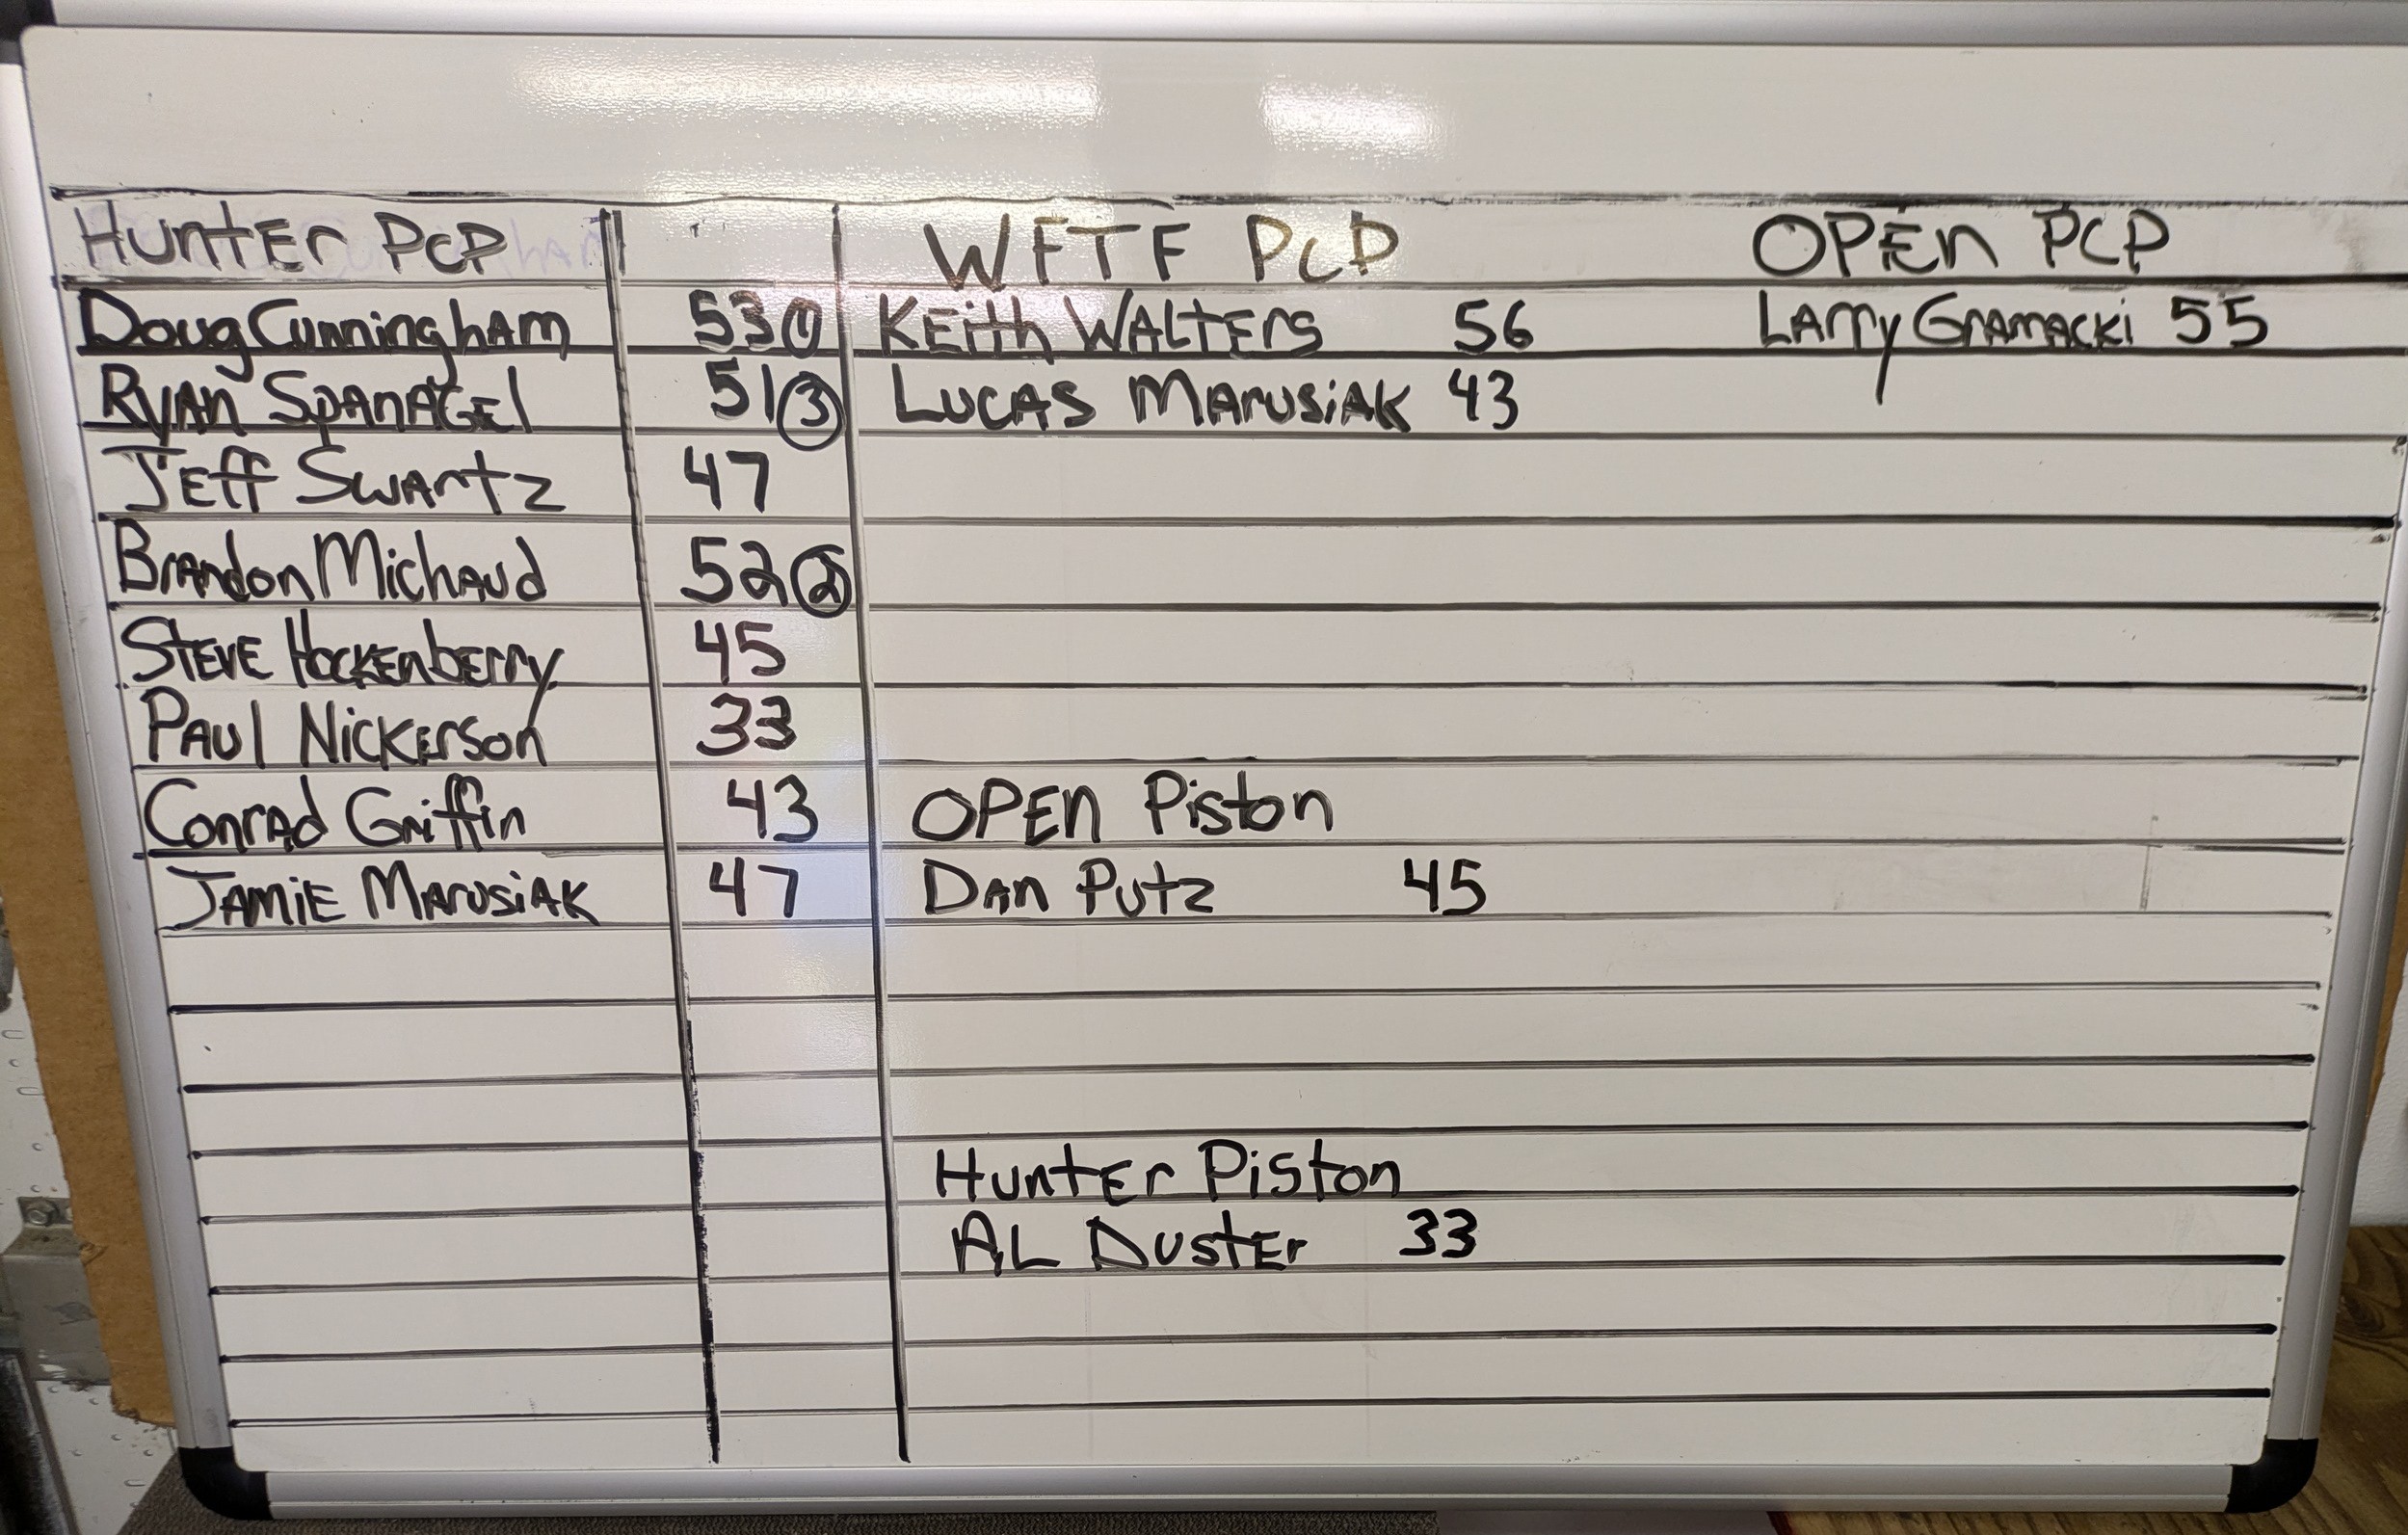 HUNTER PCP WFTF PCP OPEN PCP
Doug Cunningham 53 ① KEith WALTERS 56 LARRY GRAMACKi 55
RYAN SPANAGEL 51 ③ LUCAS MARUSiAK 43
JEff SWARTZ 47
BRANDON Michaud 52 ②
STEVE HOCKENBERRY 45
PAUL NiCKERSON 33
CONRAD GRiffin 43 OPEN Piston
JAMiE MARUSiAK 47 DAN PUTZ 45
HUNTER PiSton
AL DUSTER 33